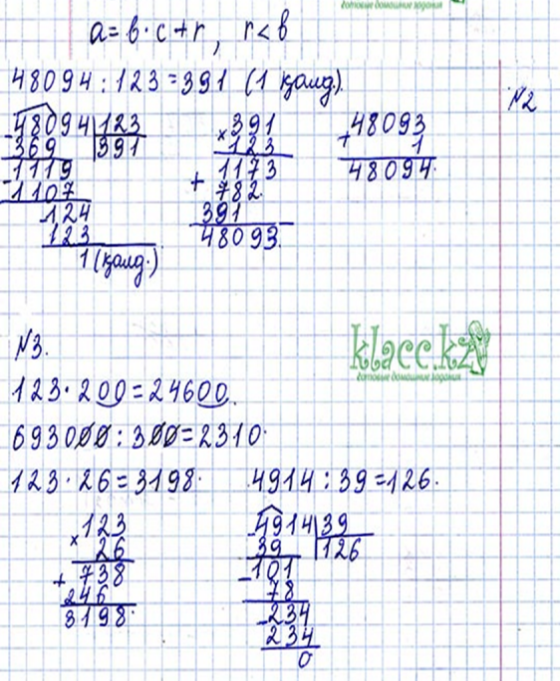 готовые домашние задания
a = b · c + r, r < b
48094 : 123 = 391 (1 қалд.).
№2
48094 | 123
- 369 | 391
1119
- 1107
124
123
1 (қалд.)
391
× 123
1173
+ 782
391
48093.
48093
+ 1
48094.
№3.
klacc.kz
готовые домашние задания
123 · 200 = 24600.
693000 : 300 = 2310.
123 · 26 = 3198.
4914 : 39 = 126.
123
× 26
738
+ 246
3198.
- 4914 | 39
39 | 126
101
- 78
- 234
234
0